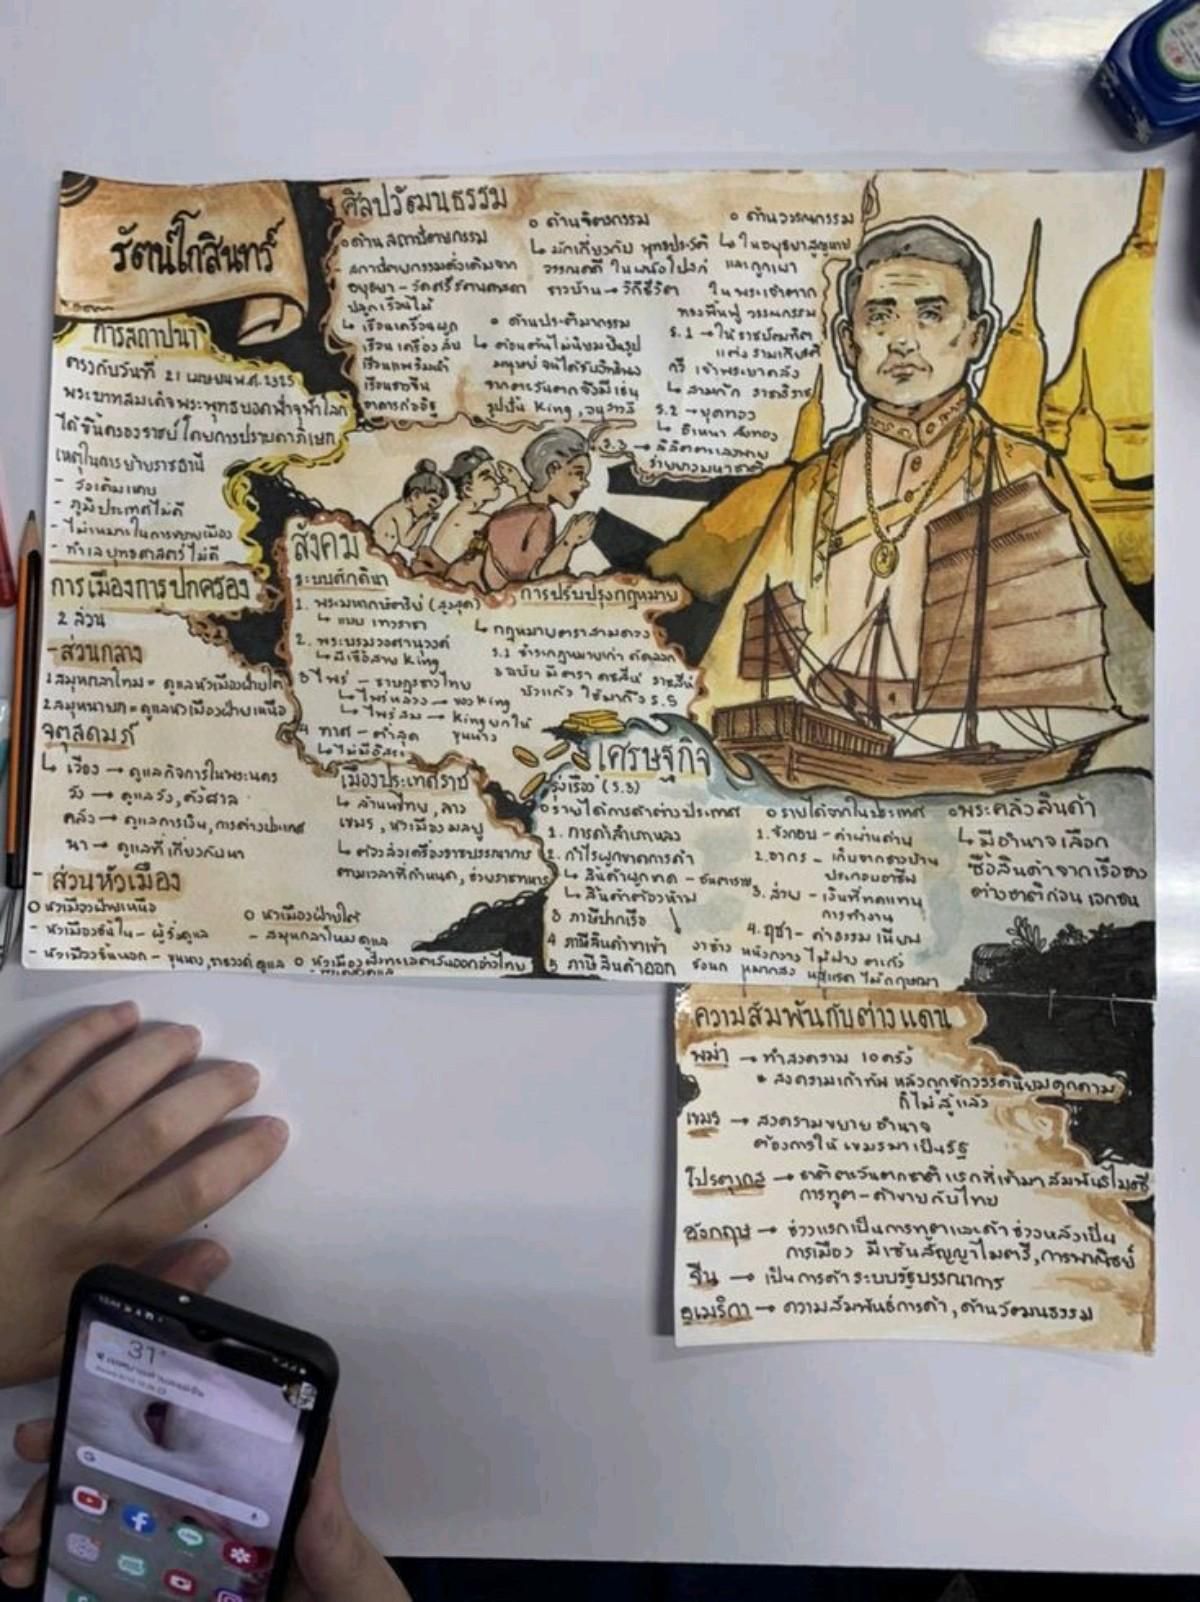 รัตนโกสินทร์
การสถาปนา
ตรงกับวันที่ 21 เมษายน พ.ศ. 2325
พระบาทสมเด็จพระพุทธยอดฟ้าจุฬาโลก
ได้ขึ้นครองราชย์ โดยการปราบดาภิเษก
เหตุในการย้ายราชธานี
- วังเดิมแคบ
- ภูมิประเทศไม่ดี
- ไม่เหมาะในการขยายเมือง
- ทำเลยุทธศาสตร์ไม่ดี
การเมืองการปกครอง
2 ส่วน
- ส่วนกลาง
1 สมุหกลาโหม = ดูแลหัวเมืองฝ่ายใต้
2 สมุหนายก = ดูแลหัวเมืองฝ่ายเหนือ
จตุสดมภ์
↳ เวียง → ดูแลกิจการในพระนคร
วัง → ดูแลวัง, ตั้งศาล
คลัง → ดูแลการเงิน, การต่างประเทศ
นา → ดูแลที่เกี่ยวกับนา
- ส่วนหัวเมือง
o หัวเมืองฝ่ายเหนือ
- หัวเมืองชั้นใน - ผู้รั้งดูแล
- หัวเมืองชั้นนอก - ขุนนาง, ราชวงศ์ ดูแล
o หัวเมืองฝ่ายใต้
- สมุหกลาโหมดูแล
o หัวเมืองฝั่งทะเลตะวันออกอ่าวไทย
ศิลปวัฒนธรรม
o ด้านสถาปัตยกรรม
- สถาปัตยกรรมดั้งเดิมจาก
อยุธยา - วัดศรีรัตนศาสดา
ปลูกเรือนไม้
↳ เรือนเครื่องผูก
เรือนเครื่องสับ
เรือนแพริมน้ำ
เรือนของจีน
อาคารก่ออิฐ
o ด้านจิตรกรรม
↳ มักเกี่ยวกับ พุทธประวัติ
วรรณคดี ในหนังใปงก์
ชาวบ้าน → วิถีชีวิต
o ด้านประติมากรรม
↳ ตอนต้นไม่นิยมปั้นรูป
มนุษย์ จนได้รับอิทธิพล
จากตะวันตกจึงมีเช่น
รูปปั้น King, อนุสาวรีย์
o ด้านวรรณกรรม
↳ ในอยุธยาสูญหาย
และถูกเผา
ในพระเจ้าตาก
ทรงฟื้นฟู วรรณกรรม
ร.1 → ให้ราชบัณฑิต
แต่ง รามเกียรติ์
กวี เจ้าพระยาคลัง
↳ สามก๊ก ราชาธิราช
ร.2 → ขุดทอง
↳ อิเหนา สังข์ทอง
ร.3 → ลิลิตตะเลงพ่าย
ร่ายยาวมหาชาติ
สังคม
ระบบศักดินา
1. พระมหากษัตริย์ (สูงสุด)
↳ แบบ เทวราชา
2. พระบรมวงศานุวงศ์
↳ มีเชื้อสาย King
3 ไพร่ - ราษฎรชาวไทย
↳ ไพร่หลวง → ของ King
↳ ไพร่สม → King ยกให้
ขุนนาง
4 ทาส - ต่ำสุด
↳ ไม่มีอิสระ
การปรับปรุงกฎหมาย
↳ กฎหมายตราสามดวง
ร.1 ชำระกฎหมายเก่า คัดลอก
3 ฉบับ มีตรา คชสีห์ ราชสีห์
บัวแก้ว ใช้มาถึง ร.5
เมืองประเทศราช
↳ ล้านนาไทย, ลาว
เขมร, หัวเมืองมลายู
↳ ต้องส่งเครื่องราชบรรณาการ
ตามเวลาที่กำหนด, ช่วยราชทหาร
เศรษฐกิจ
รุ่งเรือง (ร.3)
o รายได้การค้าต่างประเทศ
1. การค้าสำเภาหลวง
2. กำไรผูกขาดการค้า
↳ สินค้าผูกขาด - อันตราย
↳ สินค้าต้องห้าม
3 ภาษีปากเรือ
4 ภาษีสินค้าขาเข้า
5 ภาษีสินค้าออก
งาช้าง หนังกวาง ไม้ฝาง ตะกั่ว
รังนก หมากสง ไม้กฤษณา
o รายได้จากในประเทศ
1. จังกอบ - ค่าผ่านด่าน
2. อากร - เก็บจากชาวบ้าน
ประกอบอาชีพ
3. ส่วย - เงินที่ทดแทน
การทำงาน
4. ฤชา - ค่าธรรมเนียม
o พระคลังสินค้า
↳ มีอำนาจเลือก
ซื้อสินค้าจากเรือชาว
ต่างชาติก่อน เอกชน
ความสัมพันกับต่างแดน
พม่า → ทำสงคราม 10 ครั้ง
* สงครามเก้าทัพ หลังถูกจักรวรรดินิยมคุกคาม
ก็ไม่สู้แล้ว
เขมร → สงครามขยายอำนาจ
ต้องการให้เขมรมาเป็นรัฐ
โปรตุเกส → ชาติตะวันตกชาติแรกที่เข้ามาสัมพันธ์ไมตรี
การทูต - ค้าขายกับไทย
อังกฤษ → ช่วงแรกเป็นการทูตและค้า ช่วงหลังเป็น
การเมือง มีเซ้นสัญญาไมตรี, การพาณิชย์
จีน → เป็นการค้าระบบรัฐบรรณาการ
อเมริกา → ความสัมพันธ์การค้า, ด้านวัฒนธรรม
31°